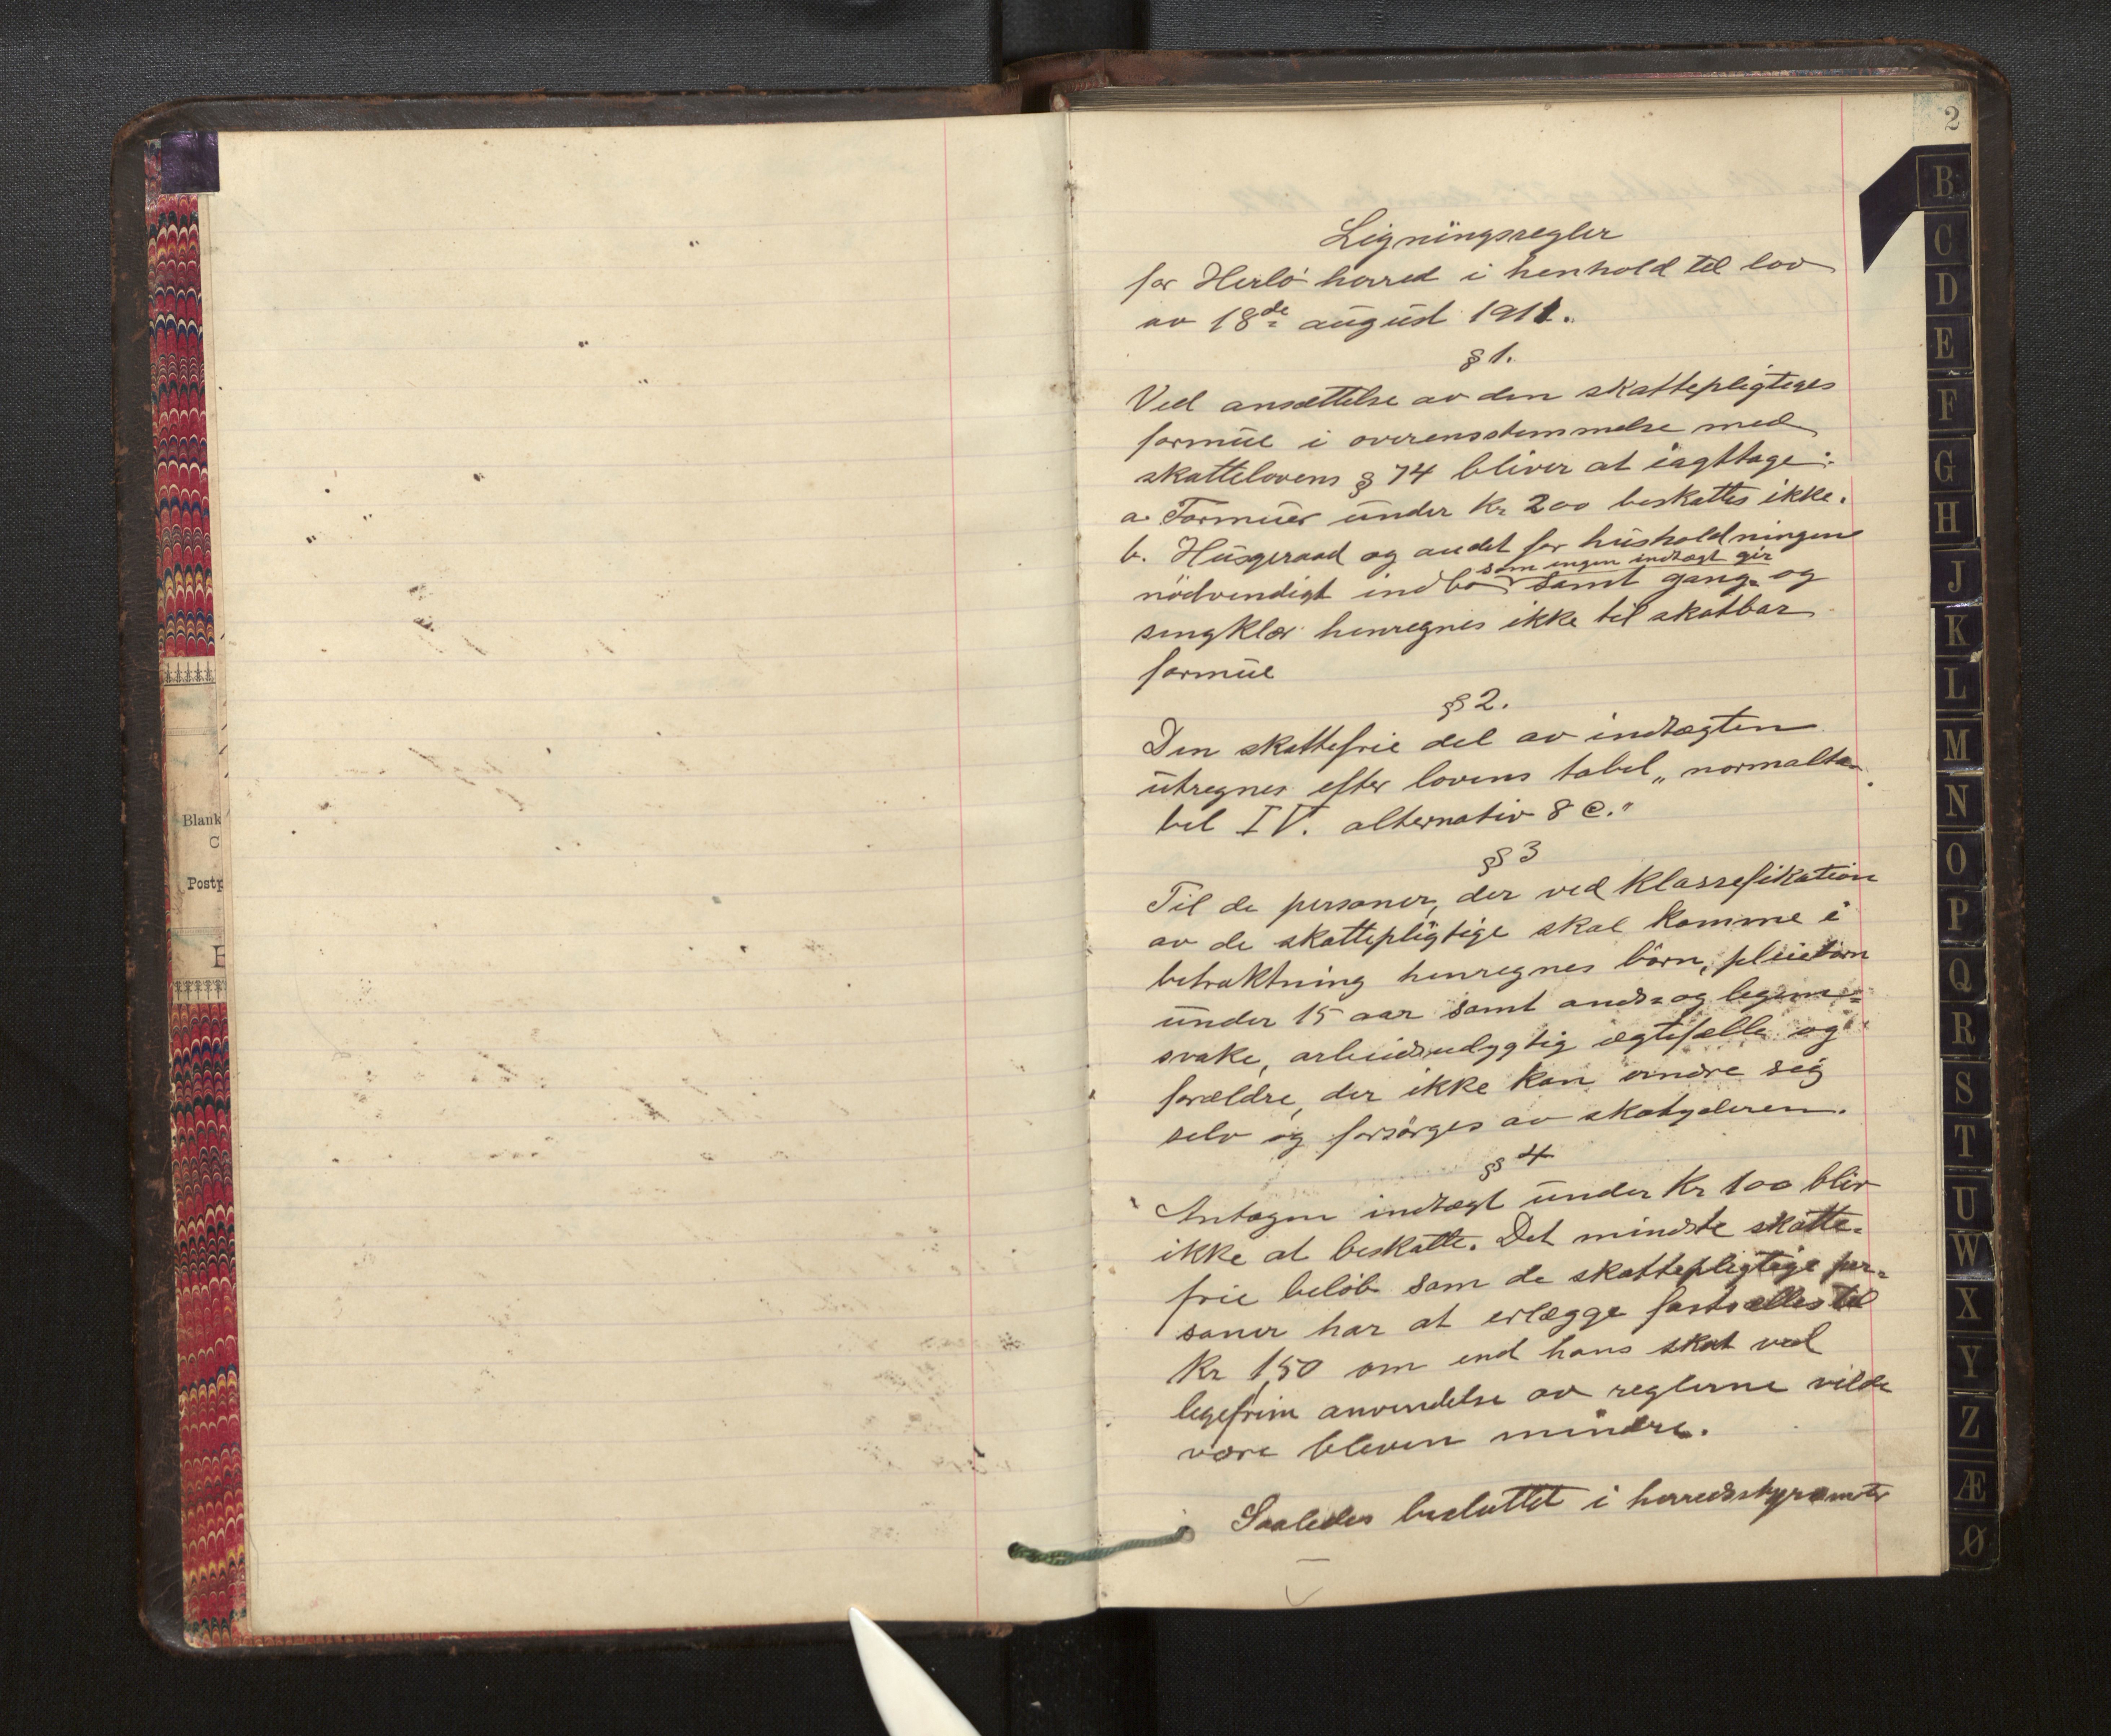 Blank
C
Postp
E
2
B
C
D
E
F
G
H
J
K
L
M
N
O
P
Q
R
S
T
U
W
X
Y
Z
Æ
Ø
Ligningsregler
for Herlø herred i henhold til lov
av 18de august 1911.
§ 1.
Ved ansættelse av den skattepligtiges
formue i overensstemmelse med
skattelovens § 74 bliver at iagttage:
a. Formuer under Kr 200 beskattes ikke.
b. Husgeraad og andet for husholdningen
som ingen indtægt gir
nödvendigt indbo samt gang- og
sengklær henregnes ikke til skatbar
formue
§ 2.
Den skattefrie del av indtægten
utregnes efter lovens tabel „normalta-
bel IV. alternativ 8 c."
§ 3
Til de personer, der ved klassefikation
av de skattepligtige skal komme i
betraktning henregnes börn, pleiebörn
under 15 aar samt ands- og legems-
svake, arbeidsudygtig ægtefælle og
forældre, der ikke kan ernære sig
selv og forsörges av skatyderen.
§ 4
Antagen indtægt under Kr 100 blir
ikke at beskatte. Det mindste skatte-
frie belöb som de skattepligtige per-
soner har at erlægge fastsættes til
Kr 1,50 om end hans skat ved
legefrem anvendelse av reglerne vilde
være bleven mindre.
Saaledes besluttet i herredsstyremöter